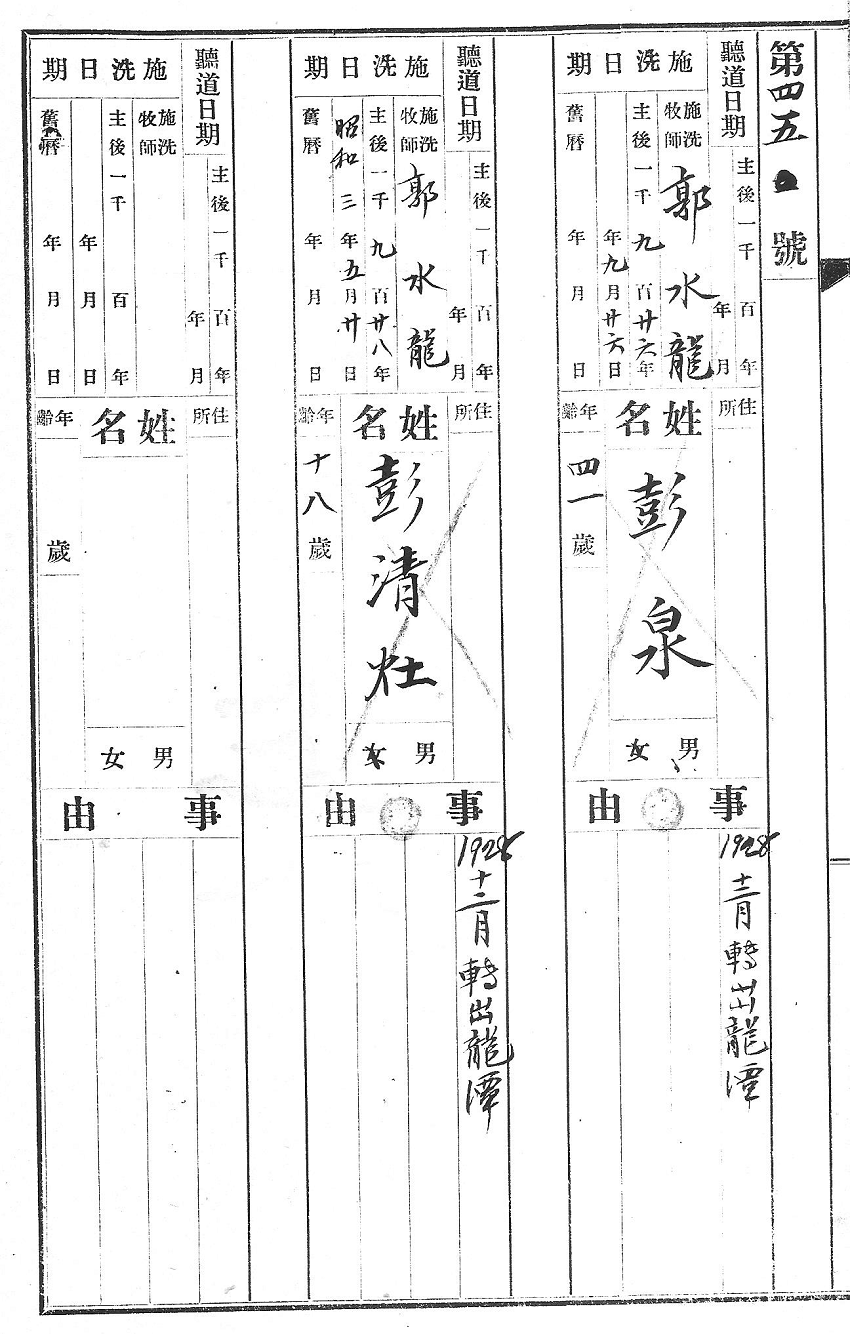 第四五號
聽道日期 主後一千 百 年 年 月
施洗日期
施洗牧師 郭水龍
主後一千九百廿六年
年九月廿六日
舊曆 年 月 日
住所
姓名
彭泉
男 女
年齡
四一歲
事由
1928 十二月轉出龍潭
聽道日期 主後一千 百 年 年 月
施洗日期
施洗牧師 郭水龍
主後一千九百廿八年
昭和三年五月廿日
舊曆 年 月 日
住所
姓名
彭清灶
男
年齡
十八歲
事由
1928 十二月轉出龍潭
聽道日期 主後一千 百 年 年 月
施洗日期
施洗牧師
主後一千 百 年
年 月 日
舊曆 年 月 日
住所
姓名
男 女
年齡
歲
事由